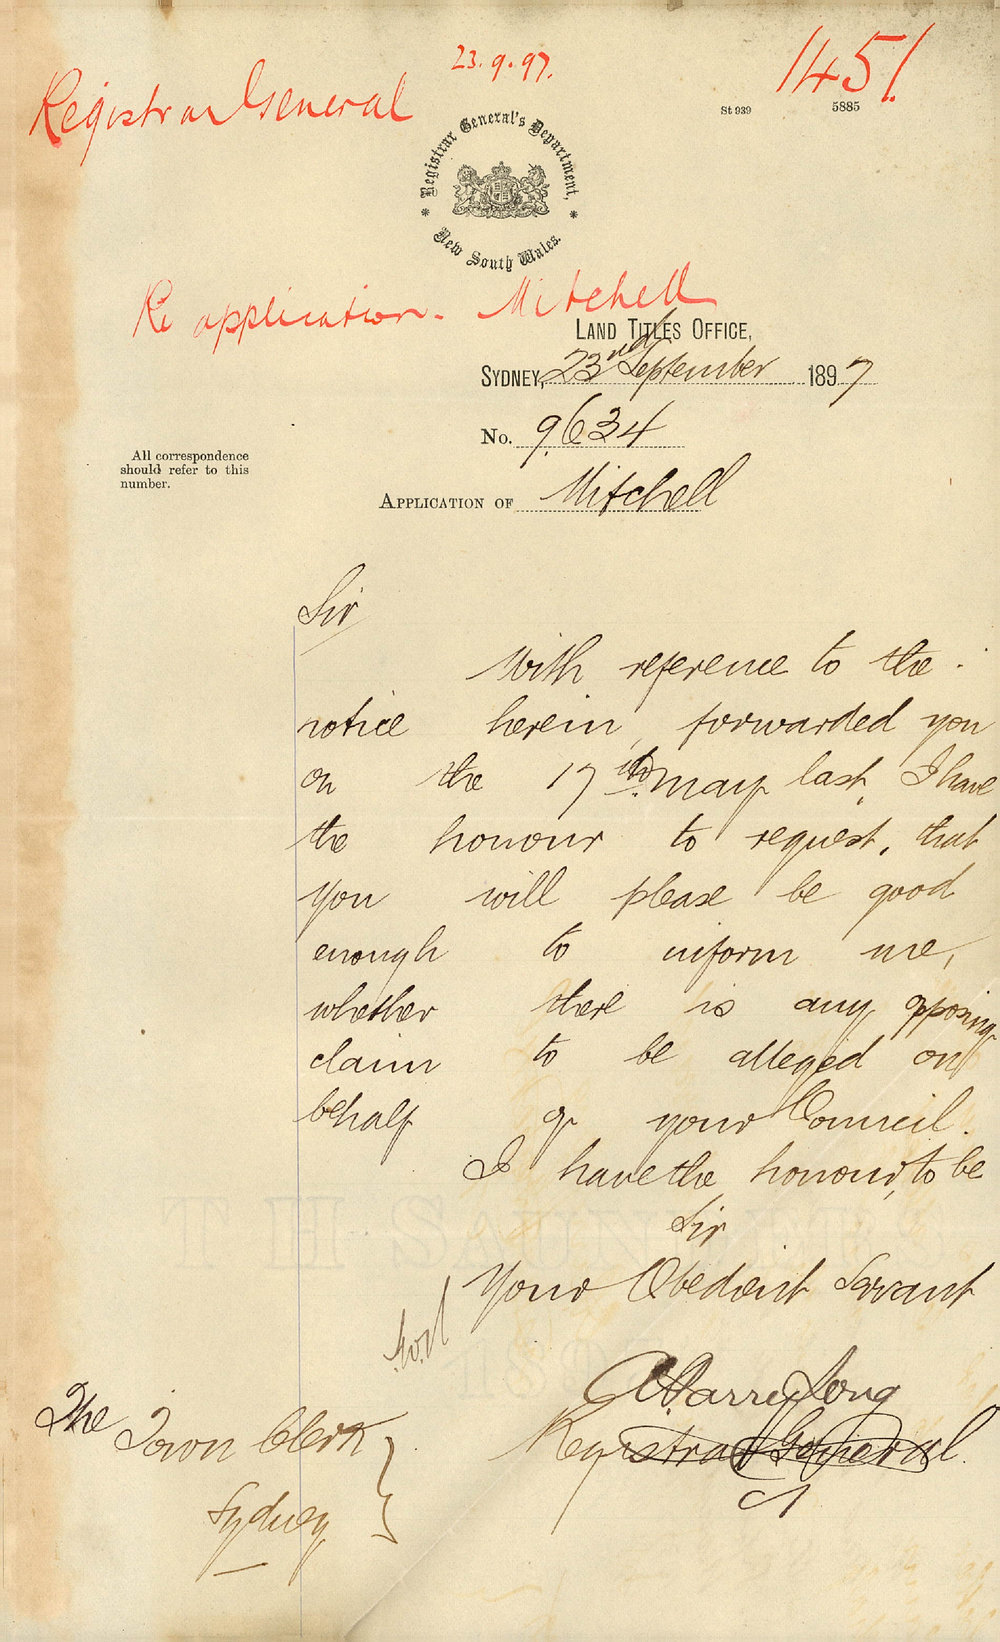 23.9.97.
1451.
Registrar General
St 939
5885
* Registrar General's Department, *
New South Wales.
Re application - Mitchell
LAND TITLES OFFICE,
SYDNEY, 23rd September 1897
No. 9.634
All correspondence
should refer to this
number.
APPLICATION OF Mitchell
Sir
With reference to the
notice herein, forwarded you
on the 17th May last, I have
the honour to request, that
you will please be good
enough to inform me,
whether there is any opposing
claim to be alleged on
behalf of your Council.
I have the honour, to be
Sir
Your Obedient Servant
Registrar General.
The Town Clerk
Sydney